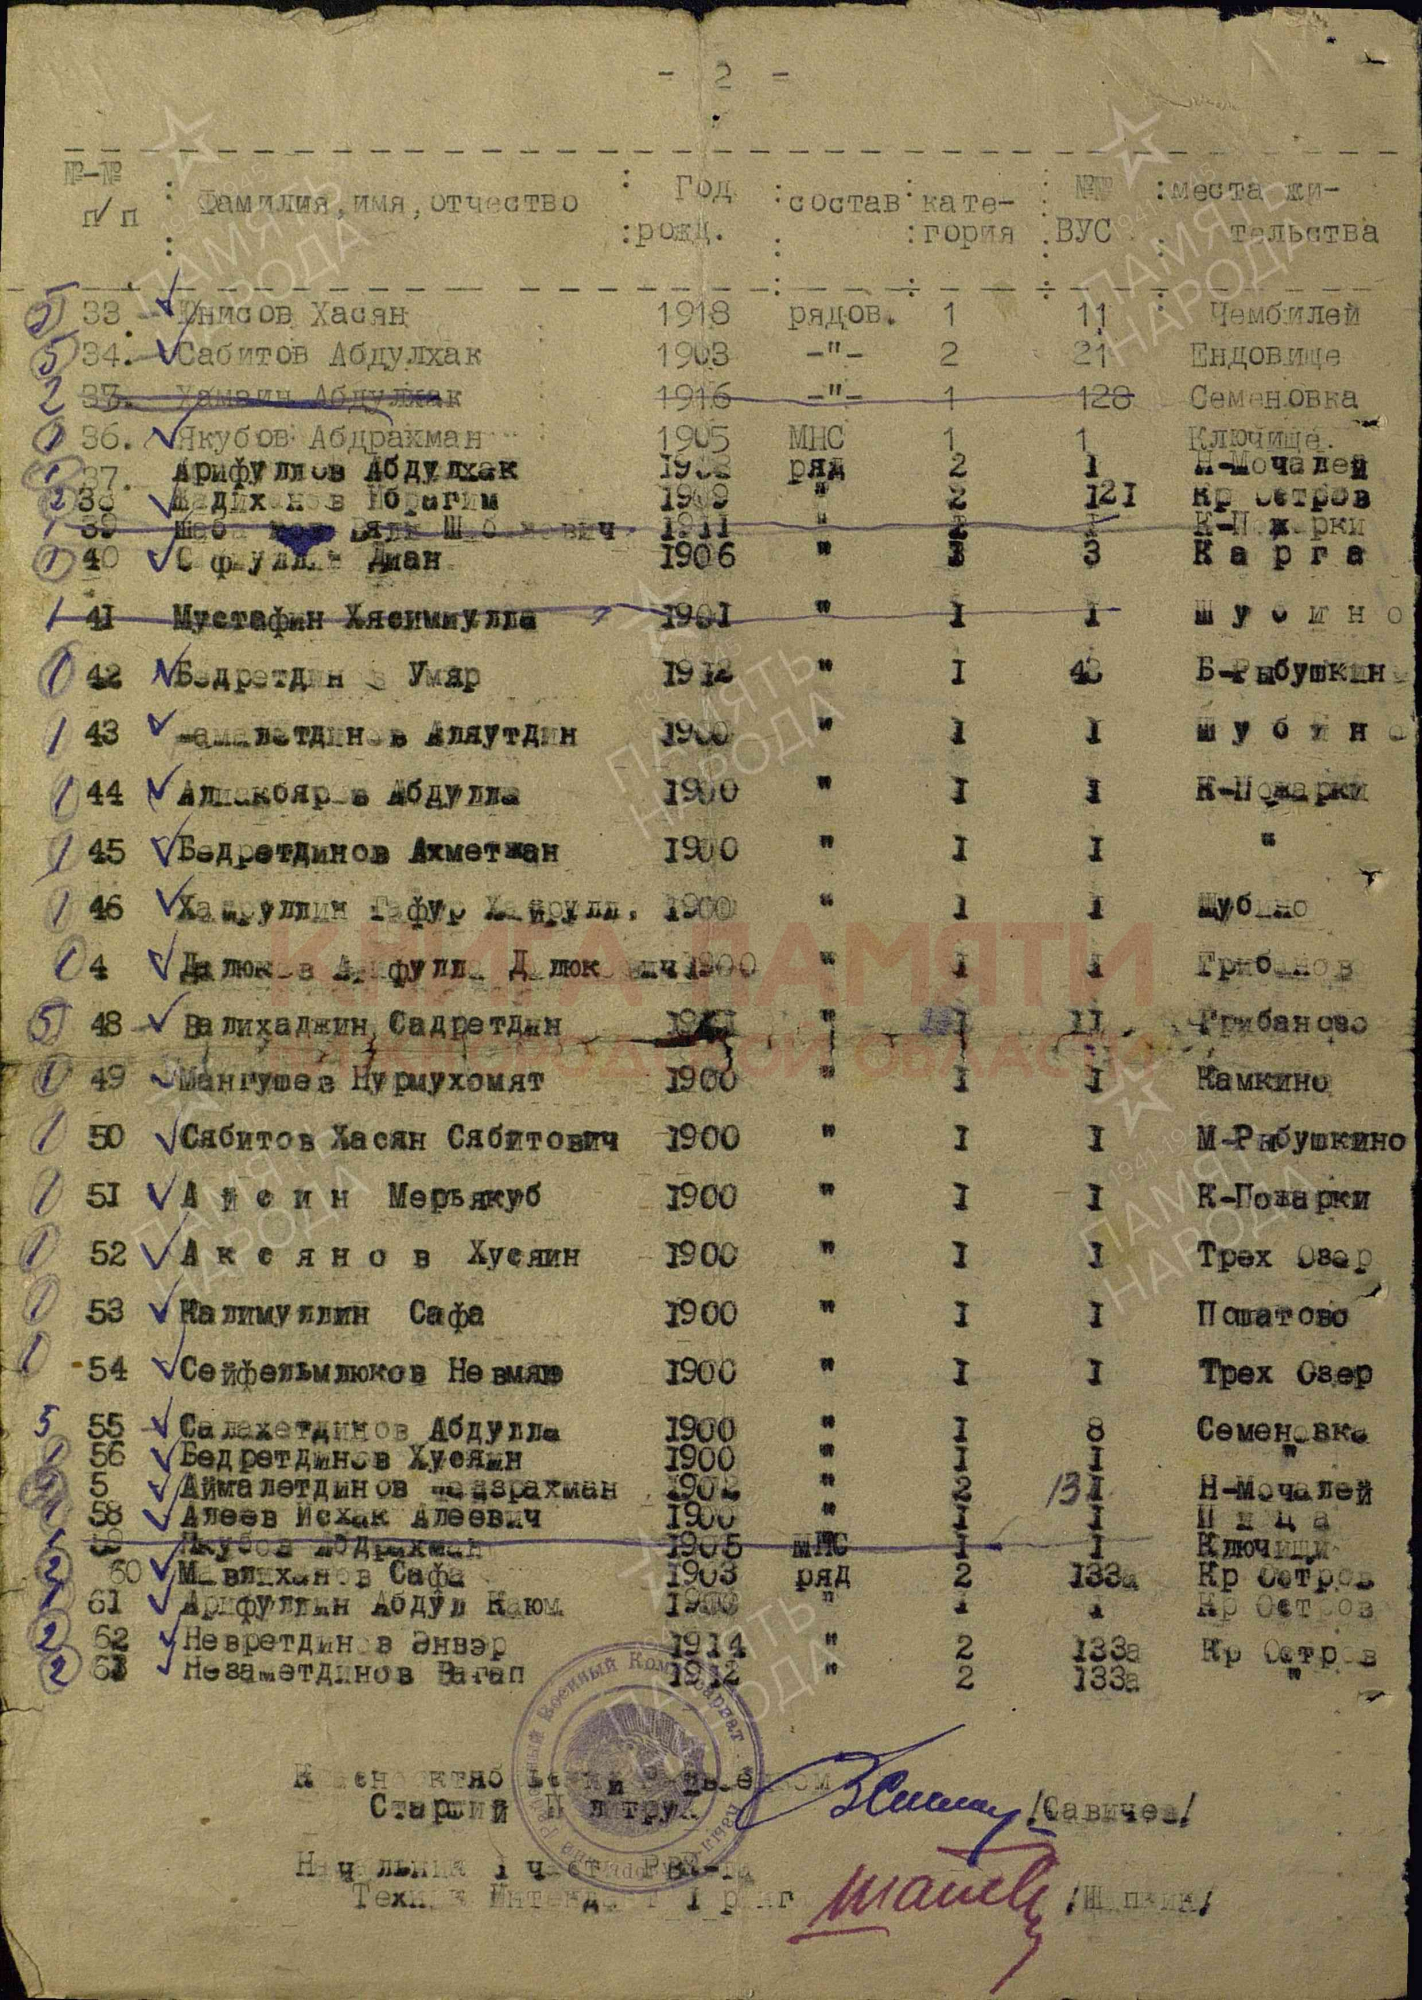 - 2 -
№-№ п/п : Фамилия, имя, отчество : Год рожд. : состав : кате-гория : №№ ВУС : места жи-тельства
5 33 Юнисов Хасян 1918 рядов. 1 11 Чембилей
5 34. Сабитов Абдулхак 1903 -"- 2 21 Ендовище
2 Абдулхак 1916 -"- 1 128 Семеновка
1 36. Якубов Абдрахман 1905 МНС 1 1 Ключище.
1 37. Арифуллов Абдулхак ряд 2 1 Н-Мочалей
2 38 Ибрагим 1909 " 2 121 Кр Остров
1 39 1911 " 1 К-Пожарки
1 40 Диан 1906 " 3 Карга
1 41 Мустафин Хясимиулла 1901 " I I Шубино
1 42 Бедретдинов Умяр 1912 " I 43 Б-Рыбушкино
1 43 Аляутдин 1900 " I I Шубино
1 44 Алиакбяров Абдулла 1900 " I I К-Пожарки
1 45 Бедретдинов Ахметжан 1900 " I I "
1 46 Хайруллин Гафур Хайрулл. 1900 " I I Шубино
1 4 Далюков Арифулла Далюкович 1900 " I I Грибанов
5 48 Валихаджин Садретдин " I 11 Грибаново
1 49 Мангушев Нурмухомят 1900 " I I Камкино
1 50 Сябитов Хасян Сябитович 1900 " I I М-Рыбушкино
1 51 Айсин Мерьякуб 1900 " I I К-Пожарки
1 52 Аксянов Хусяин 1900 " I I Трех Озер
1 53 Калимуллин Сафа 1900 " I I Пошатово
1 54 Сейфельмлюков Невмяю 1900 " I I Трех Озер
5 55 Салахетдинов Абдулла 1900 " I 8 Семеновка
1 56 Бедретдинов Хусяин 1900 " I I "
5 Аймалетдинов 1902 " 2 13I Н-Мочалей
1 58 Алеев Исхак Алеевич 1900 " I I Пица
1 Якубов Абдрахман 1905 МНС I I Ключищи
2 60 Мавлиханов Сафа 1903 ряд 2 133а Кр Остров
1 61 Арифуллин Абдул Каюм 1900 " I I Кр Остров
2 62 Невретдинов Энвэр 1914 " 2 133а Кр Остров
2 Незаметдинов Вагап 1912 " 2 133а "
Старший Политрук /Савичев/
Начальник 1 части РВК-та
Техник Интендант I ранг
ПАМЯТЬ НАРОДА
1941-1945
КНИГА ПАМЯТИ
НИЖЕГОРОДСКОЙ ОБЛАСТИ